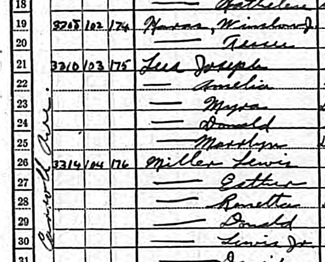 18 Kathleen
19 3208 102 174 Haras, Winslow J
20 — Tessie
21 3210 103 175 Lee Joseph
22 — Amelia
23 — Myra
24 — Donald
25 — Marrlyn
26 3214 104 176 Miller Lewis
27 — Esther
28 — Rosetta
29 — Donald
30 — Lewis Jr.
31